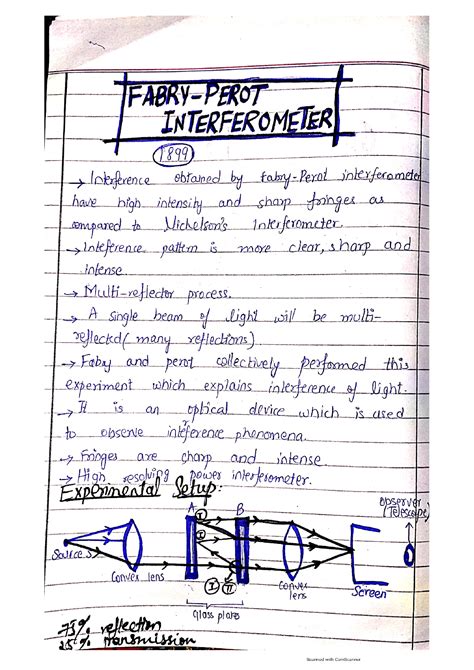 FABRY-PEROT
INTERFEROMETER
1899
→ Interference obtained by fabry-Perot interferometer
have high intensity and sharp fringes as
compared to Michelson's Interferometer.
→ Inteference pattern is more clear, sharp and
intense
→ Multi-reflector process.
→ A single beam of light will be multi-
reflected (many reflections)
→ Faby and perot collectively performed this
experiment which explains interference of light.
→ It is an optical device which is used
to observe inteference phenomena.
→ Fringes are sharp and intense.
→ High resolving power interferometer.
Experimental Setup:
Observer
(Telescope)
A B
I
I
Source S
Convex lens
I II
Convex
lens
Screen
Glass plates
75% reflection
25% transmission
Scanned with CamScanner